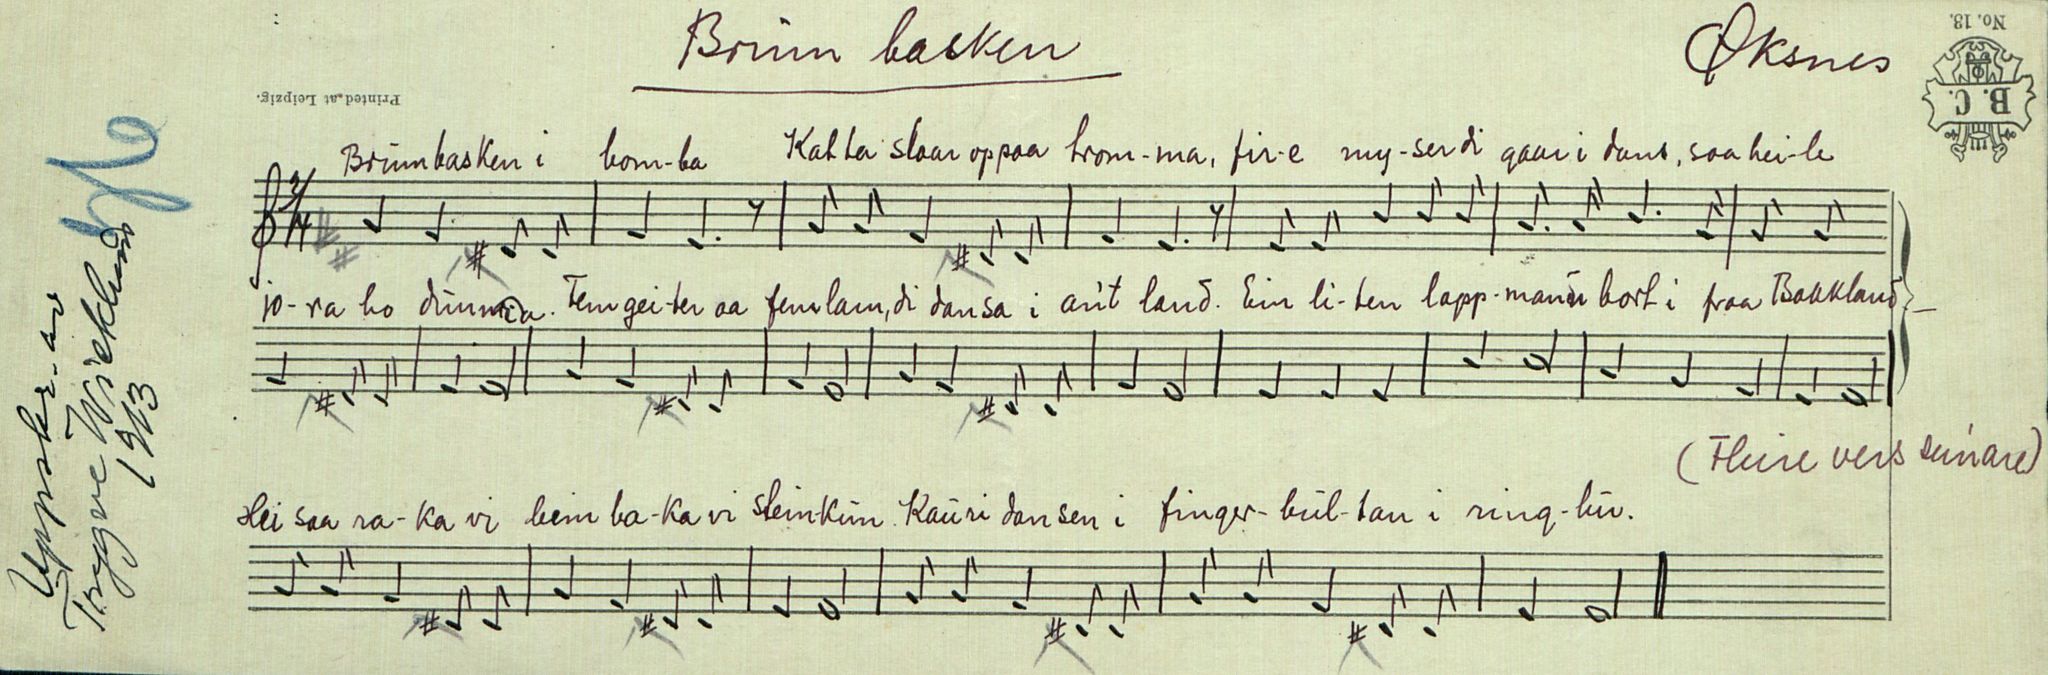 Brumbasken
Øksnes
No. 13.
B. C.
Printed at Leipzig.
Brumbasken i bom-ba Katta slaar oppaa trom-ma, fir-e my-ser di gaar i dans, saa hei-le
3/4
jo-ra ho dunna. Fem gei-ter aa fem lam, di dansa i a't land. Ein li-ten lapp-mann bort i fraa Bakkland
(Fleire vers seinare)
Hei saa ra-ka vi bein ba-ka vi steinkun. Kauri dansen i finger-bul-tan i ring-bu.
Uppskr. av
Trygve Wicklund
1913